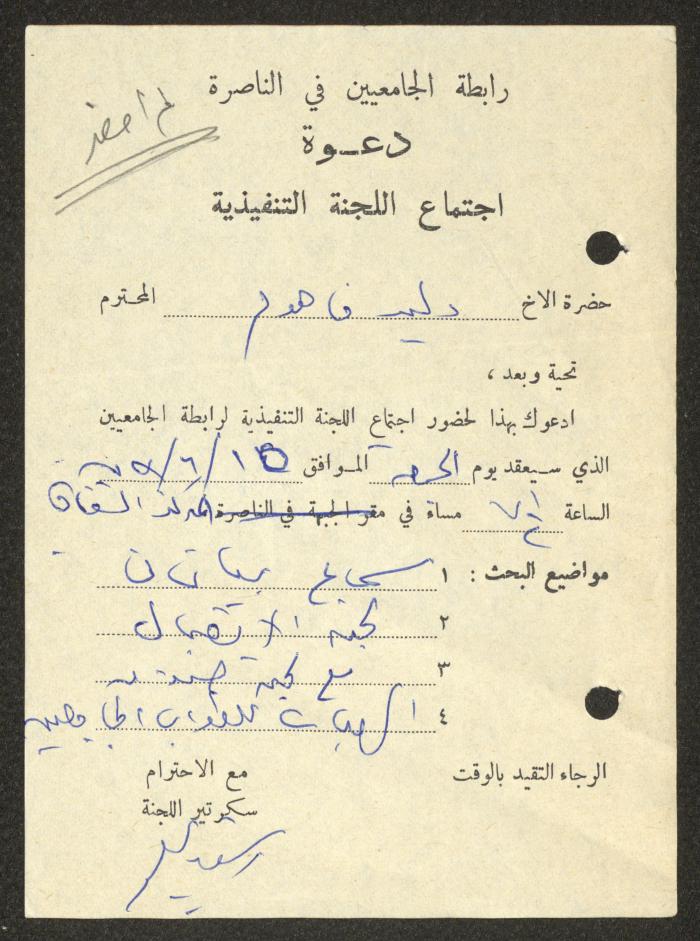 رابطة الجامعيين في الناصرة
لم احضر
دعـوة
اجتماع اللجنة التنفيذية
حضرة الاخ وليد فاهوم المحترم
تحية وبعد ،
ادعوك بهذا لحضور اجتماع اللجنة التنفيذية لرابطة الجامعيين
الذي سيعقد يوم الجمعة الموافق
الساعة مساءً في مقر الجبهة في الناصرة المركز الثقافي
مواضيع البحث : ١ سماع بيانات
٢ لجنة الاتصال
٣ مع لجنة صندوق
٤ الهبات للطلاب الجامعيين
الرجاء التقيد بالوقت
مع الاحترام
سكرتير اللجنة